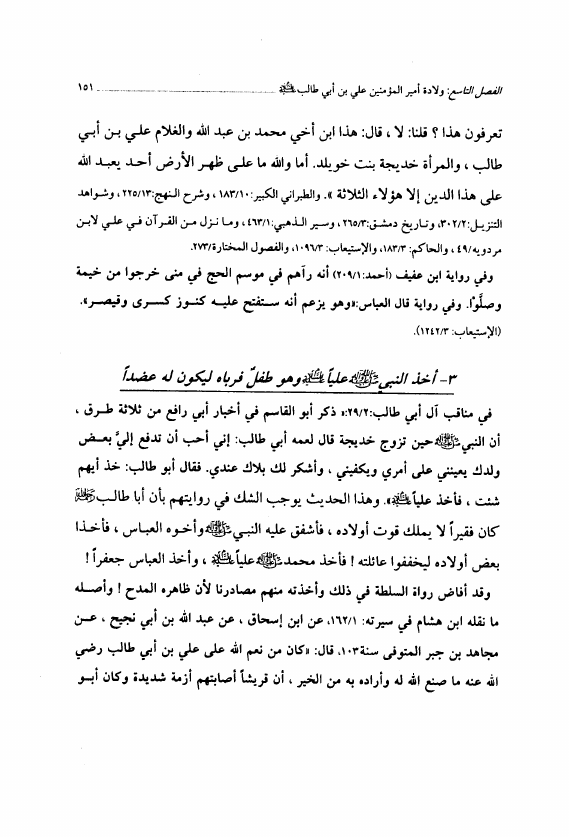 الفصل التاسع: ولادة أمير المؤمنين علي بن أبي طالب ................ ١٥١
تعرفون هذا ؟ قلنا: لا ، قال: هذا ابن أخي محمد بن عبد الله والغلام علي بن أبي
طالب ، والمرأة خديجة بنت خويلد. أما والله ما على ظهر الأرض أحد يعبد الله
على هذا الدين إلا هؤلاء الثلاثة ». والطبراني الكبير:١٨٣/١٠، وشرح النهج:٢٢٥/١٣، وشواهد
التنزيل:٣٠٢/٢، وتاريخ دمشق:٢٦٥/٣، وسير الذهبي:٤٦٣/١، وما نزل من القرآن في علي لابن
مردويه/٤٩، والحاكم: ١٨٣/٣، والإستيعاب: ١٠٩٦/٣، والفصول المختارة/٢٧٣.
وفي رواية ابن عفيف (أحمد:٢٠٩/١) أنه رآهم في موسم الحج في منى خرجوا من خيمة
وصلَّوْا. وفي رواية قال العباس:«وهو يزعم أنه ستفتح عليه كنوز كسرى وقيصر».
(الإستيعاب: ١٢٤٢/٣).
٣- أخذ النبي ﷺ علياً وهو طفلٌ فرباه ليكون له عضداً
في مناقب آل أبي طالب:٢٩/٢:« ذكر أبو القاسم في أخبار أبي رافع من ثلاثة طرق ،
أن النبي ﷺ حين تزوج خديجة قال لعمه أبي طالب: إني أحب أن تدفع إليَّ بعض
ولدك يعينني على أمري ويكفيني ، وأشكر لك بلاك عندي. فقال أبو طالب: خذ أيهم
شئت ، فأخذ علياً ». وهذا الحديث يوجب الشك في روايتهم بأن أبا طالب
كان فقيراً لا يملك قوت أولاده ، فأشفق عليه النبي ﷺ وأخوه العباس ، فأخذا
بعض أولاده ليخففوا عائلته ! فأخذ محمد ﷺ علياً ، وأخذ العباس جعفراً !
وقد أفاض رواة السلطة في ذلك وأخذته منهم مصادرنا لأن ظاهره المدح ! وأصله
ما نقله ابن هشام في سيرته: ١٦٢/١، عن ابن إسحاق ، عن عبد الله بن أبي نجيح ، عن
مجاهد بن جبر المتوفى سنة١٠٣، قال: «كان من نعم الله على علي بن أبي طالب رضي
الله عنه ما صنع الله له وأراده به من الخير ، أن قريشاً أصابتهم أزمة شديدة وكان أبو